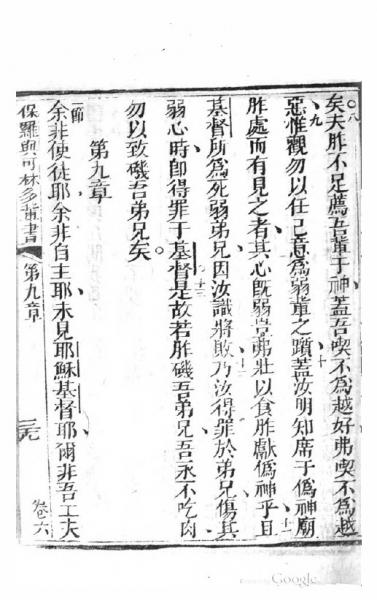 ○八
矣夫胙不足薦吾軰于神蓋吾喫不爲越好弗喫不爲越
九
惡惟觀勿以任己意爲弱軰之躓蓋汝明知席于僞神廟
十
胙處而有見之者其心既弱豈弗壯以食胙獻僞神乎且
十一
基督所爲死弱弟兄因汝識將敗乃汝得罪於弟兄傷其
十二
弱心時卽得罪于基督是故若胙磯吾弟兄吾永不吃肉
十三
勿以致磯吾弟兄矣。
第九章
一節
余非使徒耶余非自主耶未見耶穌基督耶爾非吾工夫
保羅與可林多軰書
第九章
卷六
Google